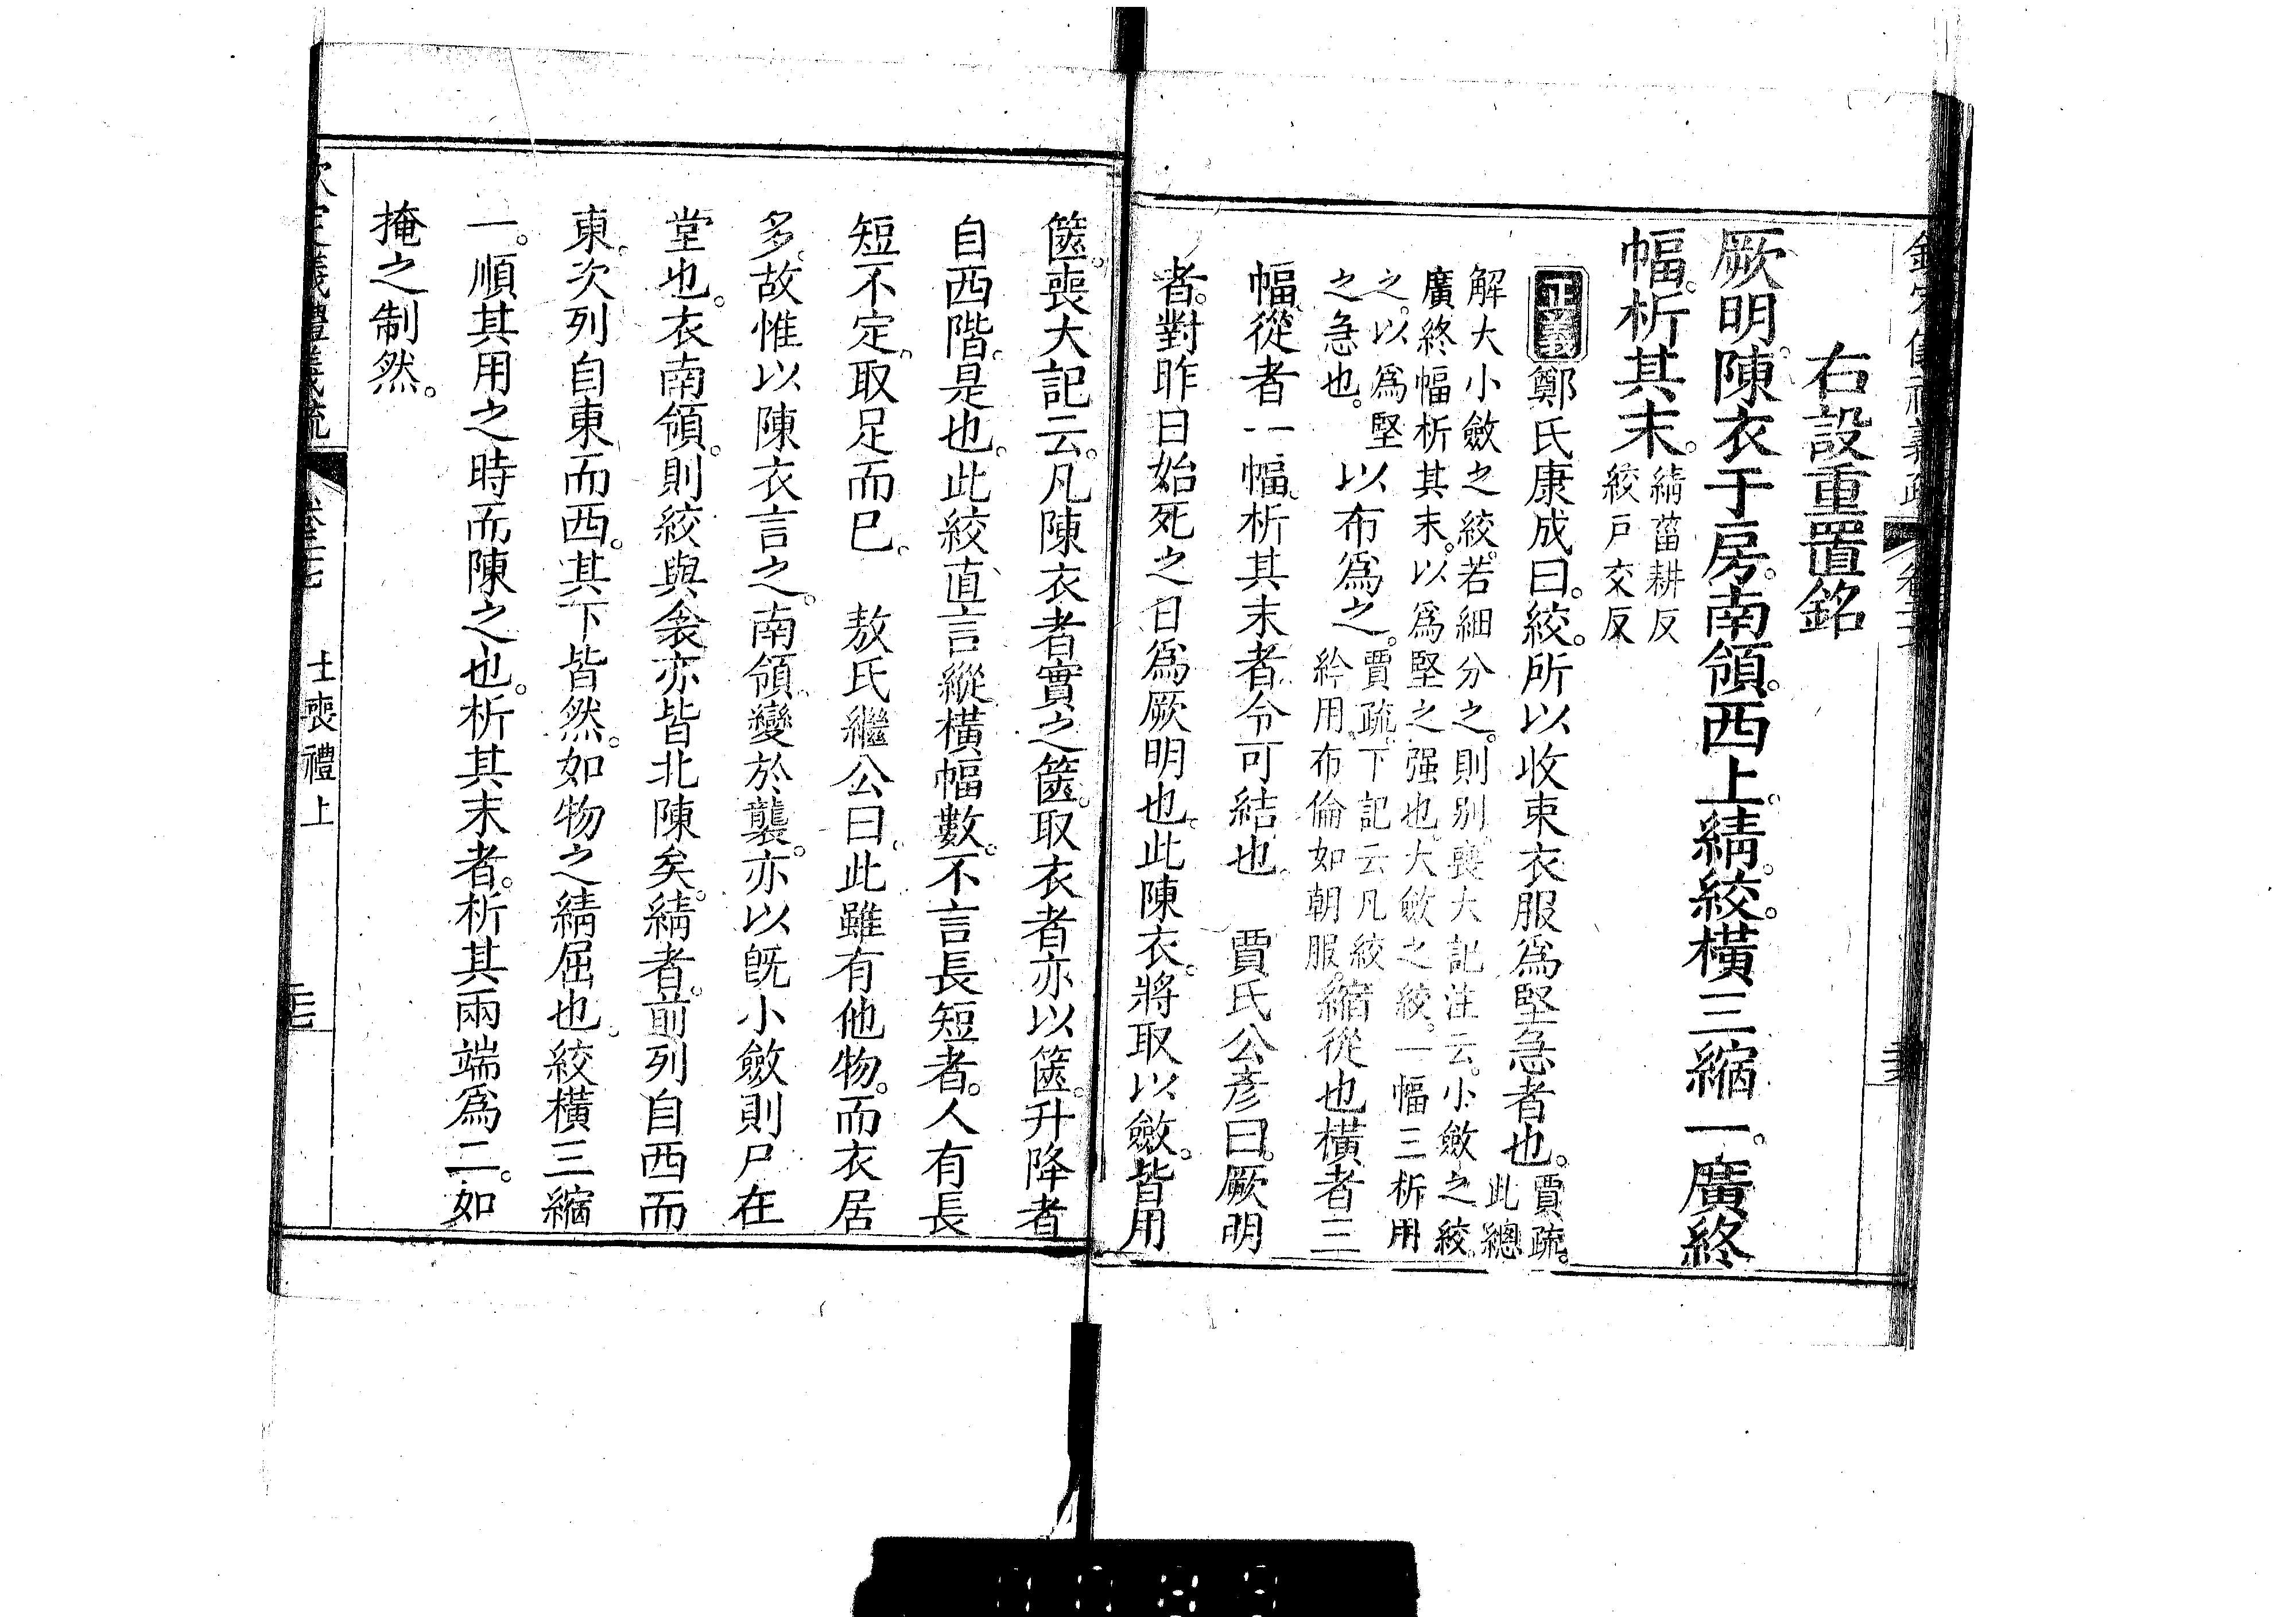 右設重置銘
厥明。陳衣于房。南領。西上。綪。絞。橫三縮一。廣終
幅。析其末。綪菑耕反
絞戶交反
正義鄭氏康成曰。絞。所以收束衣服爲堅急者也。賈疏。
此總
解大小斂之絞。若細分之。則別。喪大記注云。小斂之絞。
廣終幅析其末。以爲堅之强也。大斂之絞。一幅三析用
之。以爲堅
之急也。
以布爲之。賈疏。下記云凡絞
紟用布倫如朝服。
縮從也橫者三
幅。從者一幅。析其末者。令可結也。 賈氏公彥曰。厥明
者。對昨日始死之日爲厥明也。此陳衣。將取以斂。皆用
篋。喪大記云。凡陳衣者實之篋。取衣者亦以篋。升降者
自西階。是也。此絞直言縱橫幅數。不言長短者。人有長
短不定。取足而已。 敖氏繼公曰。此雖有他物。而衣居
多。故惟以陳衣言之。南領。變於襲。亦以旣小斂則尸在
堂也。衣南領。則絞與衾亦皆北陳矣。綪者。前列自西而
東。次列自東而西。其下皆然。如物之綪屈也。絞橫三縮
一。順其用之時而陳之也。析其末者。析其兩端爲二。如
掩之制然。
士喪禮上